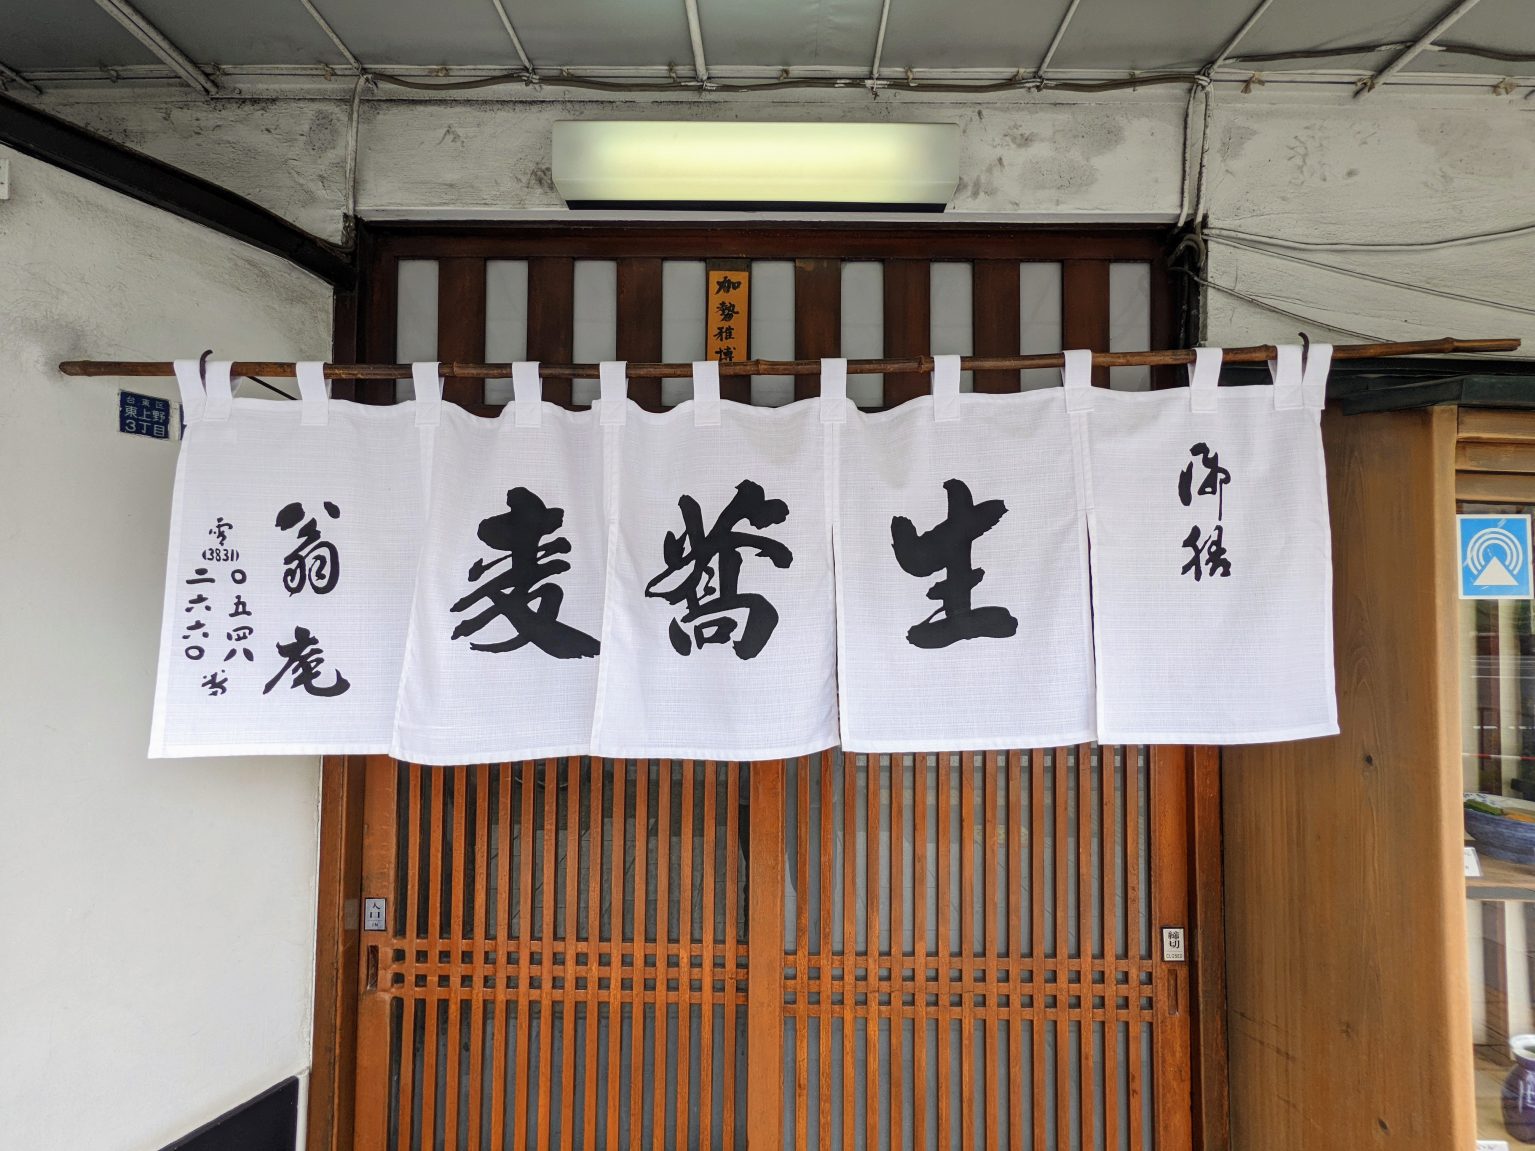 加勢雅博
台東区
東上野
3丁目
御膳
生蕎麦
翁庵
電
(3831)
〇五四八
二六六〇
番
入口
IN
締切
CLOSED